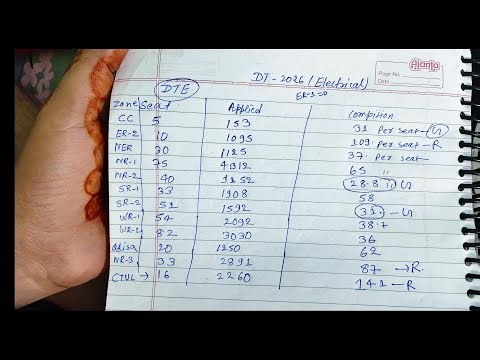 Ajanta
Page No.
Date
DT - 2026 (Electrical)
DTE
ER-1=0
Zone Seat Applied Comption
CC 5 153 31 Per seat - G
ER-2 10 1095 109. per seat - R
NER 30 1125 37. per seat
NR-1 75 4912 65 "
NR-2 40 1152 28.8 G
SR-1 33 1908 58
SR-2 51 1592 31. - G
WR-1 54 2092 38.7
WR-2 82 3030 36
odisa 20 1250 62
NR-3 33 2891 87 → R.
CTUL → 16 2260 141 - R